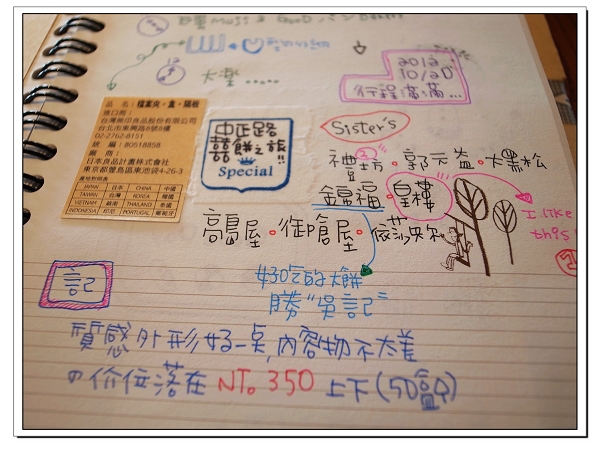 2012.
10/20
行程滿滿...
品 名：檔案夾・盒・隔板
進口商：
台灣無印良品股份有限公司
台北市東興路8號8樓
02-2762-8151
統 編：80518858
廠 商：
日本良品計畫株式會社
東京都豐島區東池袋4-26-3
產地對照表
JAPAN 日本 CHINA 中國
TAIWAN 台灣 KOREA 韓國
VIETNAM 越南 THAILAND 泰國
INDONESIA 印尼 PORTUGAL 葡萄牙
中正路
囍餅之旅!!
Special
Sister's
禮坊・郭元益・大黑松
錦福・皇樓
I like
this!
高島屋・御倉屋・依莎
吃的大餅
勝"吳記"
記
質感外形好一點,內容物不太差
の价位落在 NT. 350 上下(50盒)